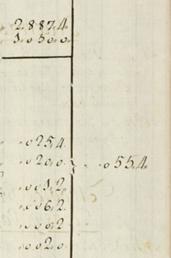 .2.8.8.7.4.
.1.0.5.0.0.
.0.2.5.4.
.0.2.0.0. .0.5.5.4.
.0.0.1.2.
.0.0.6.2.
.0.0.0.2
.0.0.2.0